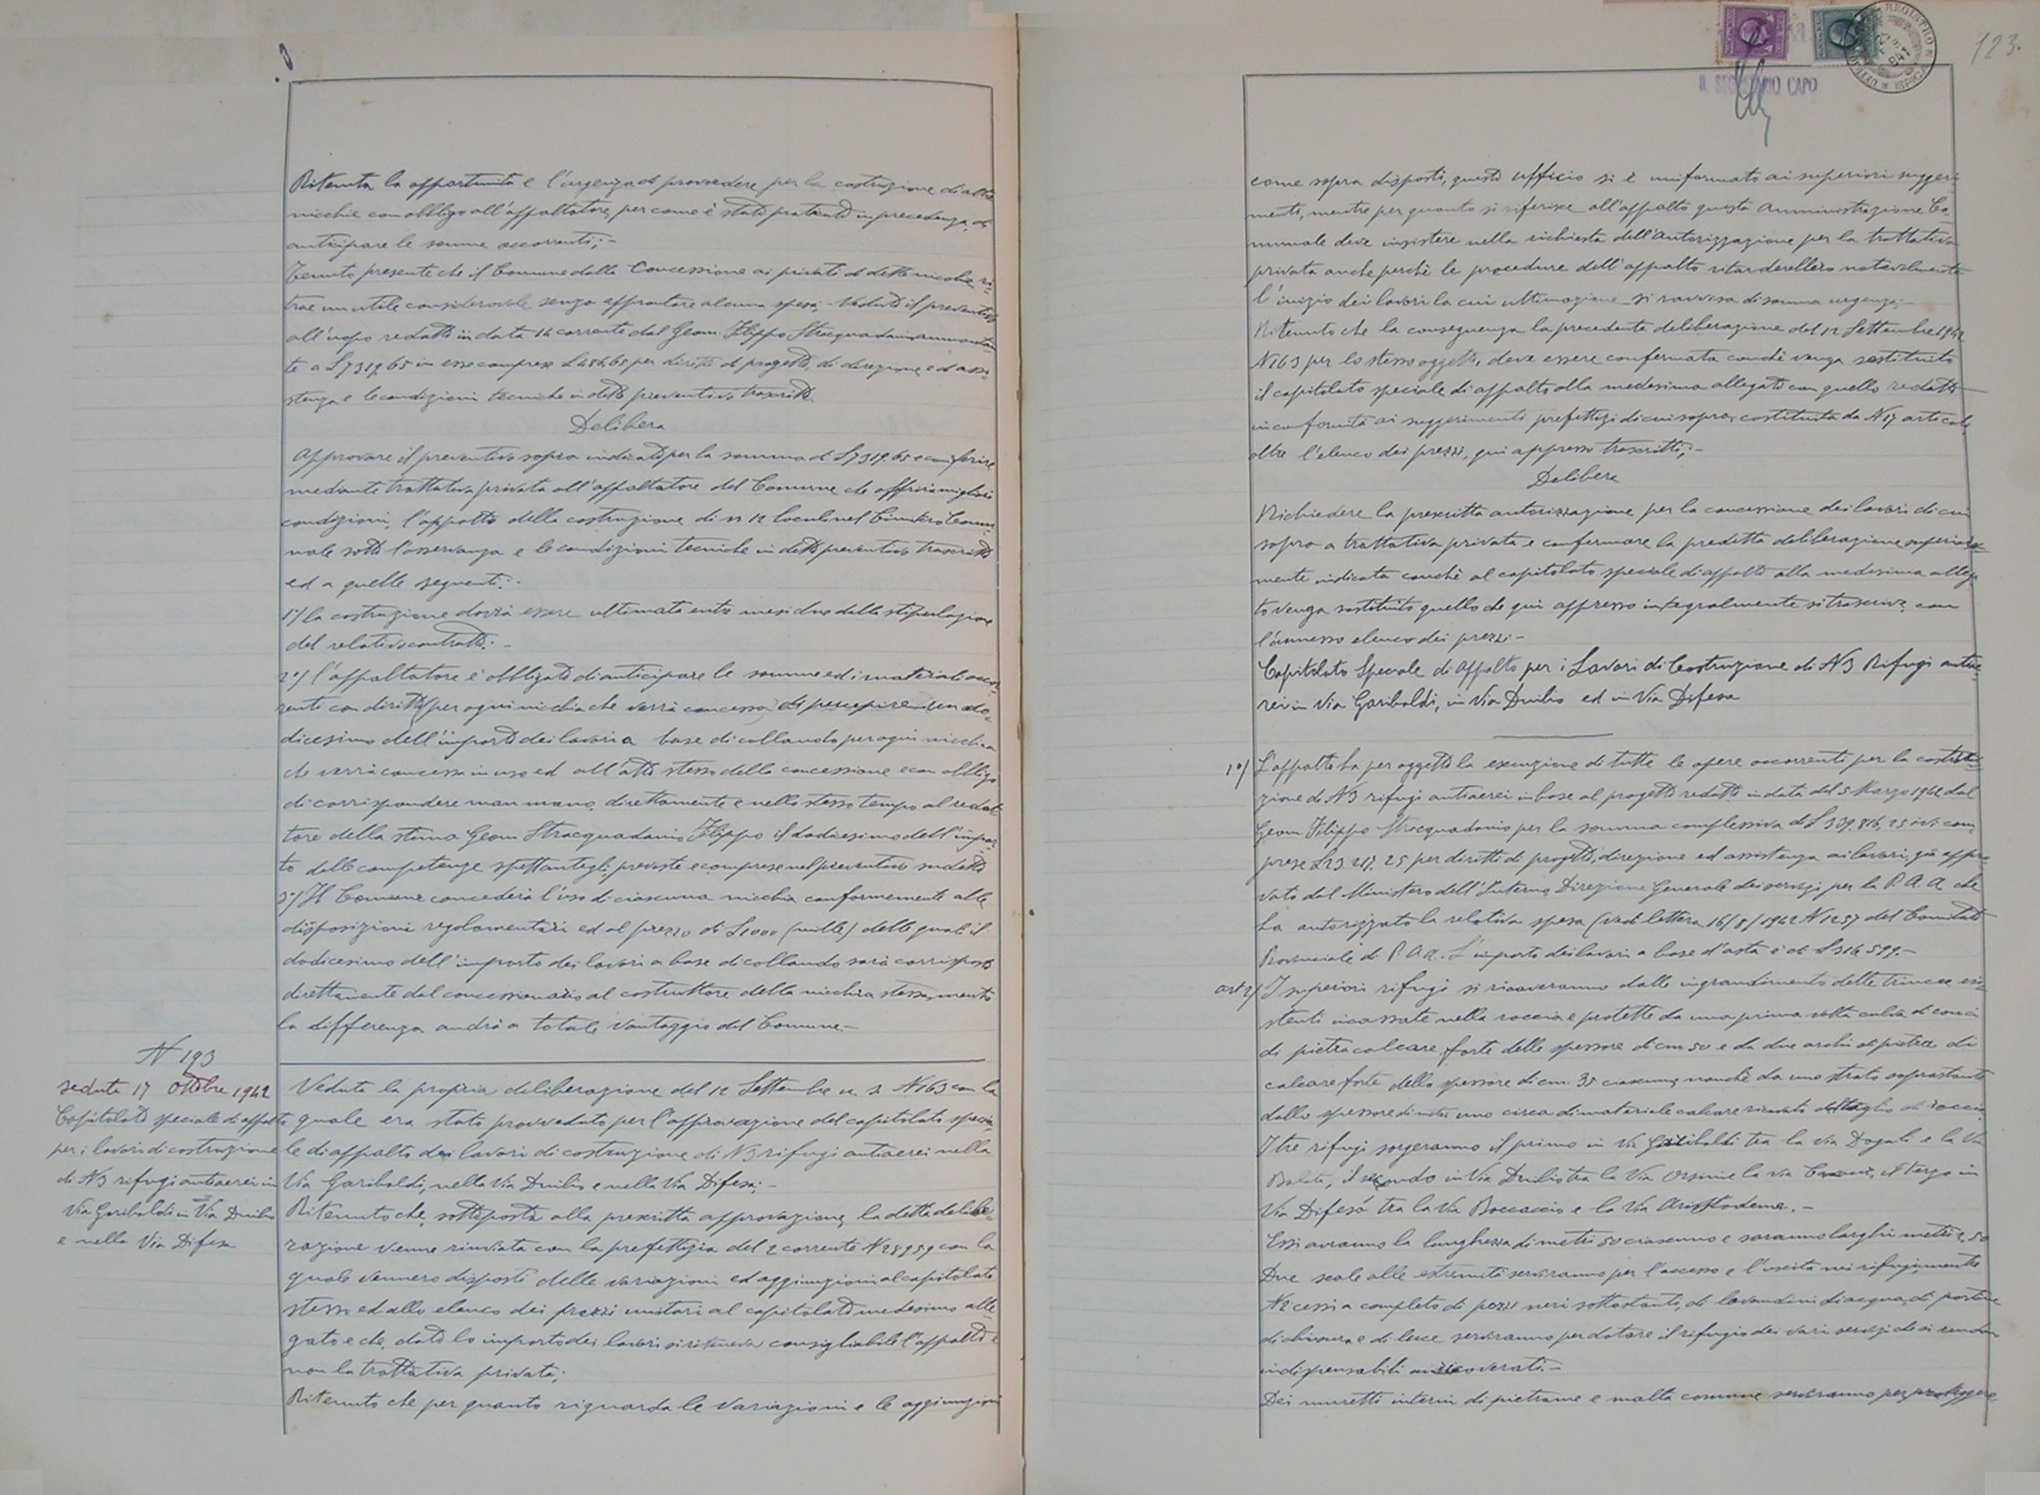 Ritenuta la opportunità e l'urgenza di provvedere per la costruzione di altre
nicchie con obbligo all'appaltatore, per come è stato praticato in precedenza, di
anticipare le somme occorrenti;-
Tenuto presente che il Comune dalla Concessione ai privati di dette nicchie ri-
trae un utile considerevole senza approntare alcuna spesa,- Veduto il preventivo
all'uopo redatto in data 14 corrente dal Geom. Filippo Stracquadanio ammontan-
te a L 7319,65 in esse comprese L 484,65 per diritti di progetto, di direzione ed assi-
stenza e le condizioni tecniche in detto preventivo trascritte.
Delibera
Approvare il preventivo sopra indicato per la somma di L 7319,65 e conferire
mediante trattativa privata all'appaltatore del Comune che offrirà migliori
condizioni, l'appalto della costruzione di n 12 loculi nel Cimitero Comu-
nale sotto l'osservanza e le condizioni tecniche in detto preventivo trascritte
ed a quelle seguenti:-
1°/ la costruzione dovrà essere ultimata entro mesi due dalla stipulazione
del relativo contratto:-
2°/ l'appaltatore è obbligato di anticipare le somme ed i materiali occor-
renti con diritto (per ogni nicchia che verrà concessa) di percepire un do-
dicesimo dell'importo dei lavori a base di collaudo per ogni nicchia
che verrà concessa in uso ed all'atto stesso della concessione e con obbligo
di corrispondere man mano, direttamente e nello stesso tempo al redat-
tore della stima Geom Stracquadanio Filippo il dodicesimo dell'impor-
to delle competenze spettantegli, previste e comprese nel preventivo sudetto
3°/ Il Comune concederà l'uso di ciascuna nicchia conformemente alle
disposizioni regolamentari ed al prezzo di L 1000 (mille) delle quali il
dodicesimo dell'importo dei lavori a base di collaudo sarà corrisposto
direttamente dal concessionario al costruttore della nicchia stessa, mentre
la differenza andrà a totale vantaggio del Comune.-
N 193
seduta 17 ottobre 1942
Capitolato speciale di appalto
per i lavori di costruzione
di N 3 rifugi antiaerei in
Via Garibaldi in Via Duilio
e nella Via Difesa
Veduta la propria deliberazione del 12 Settembre u. s. N 163 con la
quale era stato provveduto per l'approvazione del capitolato specia-
le di appalto dei lavori di costruzione di N 3 rifugi antiaerei nella
Via Garibaldi, nella Via Duilio e nella Via Difesa;-
Ritenuto che, sottoposta alla prescritta approvazione, la detta delibe-
razione venne rinviata con la prefettizia del 2 corrente N 28959 con la
quale vennero disposti delle variazioni ed aggiunzioni al capitolato
stesso ed allo elenco dei prezzi unitari al capitolato medesimo alle-
gato e che, dato lo importo dei lavori si riteneva consigliabile l'appalto e
non la trattativa privata;
Ritenuto che per quanto riguarda le variazioni e le aggiunzioni
123.
IL SEGRETARIO CAPO
come sopra disposti, questo ufficio si è uniformato ai superiori suggeri-
menti, mentre per quanto si riferisce all'appalto questa Amministrazione Co-
munale deve insistere nella richiesta dell'autorizzazione per la trattativa
privata anche perchè le procedure dell'appalto ritarderebbero notevolmente
l'inizio dei lavori la cui ultimazione si ravvisa di somma urgenza;-
Ritenuto che la conseguenza la precedente deliberazione del 12 Settembre 1942
N 163 per lo stesso oggetto, deve essere confermata conchè venga sostituito
il capitolato speciale di appalto alla medesima allegato con quello redatto
in conformità ai suggerimenti prefettizi di cui sopra, costituita da N 17 articoli,
oltre l'elenco dei prezzi, qui appresso trascritti;-
Delibera
Richiedere la prescritta autorizzazione per la concessione dei lavori di cui
sopra a trattativa privata e confermare la predetta deliberazione superior-
mente indicata conchè al capitolato speciale di appalto alla medesima allega-
to venga sostituito quello che qui appresso integralmente si trascrive, con
l'annesso elenco dei prezzi-
Capitolato Speciale di Appalto per i Lavori di Costruzione di N 3 Rifugi antiae-
rei in Via Garibaldi, in Via Duilio ed in Via Difesa
1°/ L'appalto ha per oggetto la esecuzione di tutte le opere occorrenti per la costru-
zione di N 3 rifugi antiaerei in base al progetto redatto in data del 5 Marzo 1942 dal
Geom. Filippo Stracquadanio per la somma complessiva di L 339.816,25 ivi com-
prese L 23 217.25 per diritti di progetto, direzione ed assistenza ai lavori, già appro-
vato dal Ministero dell'Interno, Direzione Generale dei servizi per la P. A. A. che
ha autorizzato la relativa spesa (vedi lettera 16/8/1942 N 1257 del Comitato
Provinciale di P. A. A. L'importo dei lavori a base d'asta è di L 316 599.-
art 2/ I superiori rifugi si ricaveranno dallo ingrandimento delle trincee esi-
stenti incassate nella roccia e protette da una prima volta di conci
di pietra calcare forte dello spessore di cm 50 e da due archi di pietra di
calcare forte dello spessore di cm. 35 ciascuno, nonchè da uno strato soprastante
dello spessore di metri uno circa di materiale calcare ricavato dal taglio di roccia.
I tre rifugi sorgeranno il primo in Via Garibaldi tra la Via Dogali e la Via
il secondo in Via Duilio tra la Via Orsini e la via il terzo in
Via Difesa tra la Via Boccaccio e la Via Aristodemo.-
Essi avranno la lunghezza di metri 50 ciascuno e saranno larghi metri 2,50
Due scale alle estremità serviranno per l'accesso e l'uscita nei rifugi, mentre
N 2 cessi a completo di pozzi neri sottostanti, di lavandini di acqua, di portine
di chiusura e di luce serviranno per dotare il rifugio dei vari servizi che si rendon
indispensabili ai ricoverati.-
Dei muretti interni di pietrame e malta comune serviranno per proteggere